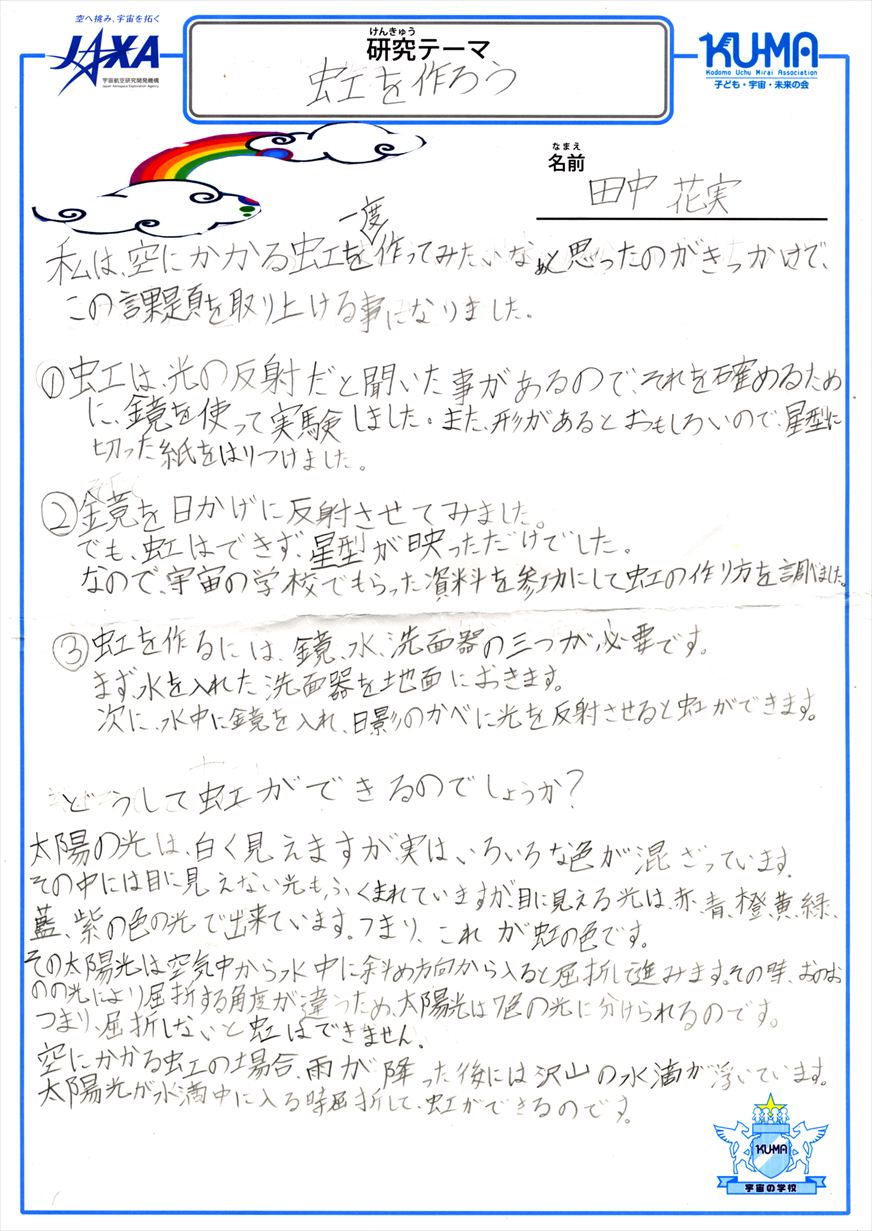 空へ挑み、宇宙を拓く
JAXA
宇宙航空研究開発機構
Japan Aerospace Exploration Agency
けんきゅう
研究テーマ
虹を作ろう
KU-MA
Kodomo Uchu Mirai Association
子ども・宇宙・未来の会
なまえ
名前
田中 花実
一度
私は、空にかかる虹を作ってみたいなぁと思ったのがきっかけで、
この課題を取り上げる事になりました。
①虹は、光の反射だと聞いた事があるので、それを確めるため
に、鏡を使って実験しました。また、形があるとおもしろいので、星型に
切った紙をはりつけました。
②鏡を日かげに反射させてみました。
でも、虹はできず、星型が映っただけでした。
なので、宇宙の学校でもらった資料を参功にして虹の作り方を調べました。
③虹を作るには、鏡、水、洗面器の三つが必要です。
まず、水を入れた洗面器を地面におきます。
次に、水中に鏡を入れ、日影のかべに光を反射させると虹ができます。
どうして虹ができるのでしょうか?
太陽の光は、白く見えますが、実は、いろいろな色が混ざっています。
その中には目に見えない光も、ふくまれていますが、目に見える光は、赤、青、橙、黄、緑、
藍、紫の色の光で出来ています。つまり、これが虹の色です。
その太陽光は空気中から水中に斜め方向から入ると屈折して進みます。その時、おのお
のの光により屈折する角度が違うため、太陽光は7色の光に分けられるのです。
つまり、屈折しないと虹はできません。
空にかかる虹の場合、雨が降った後には沢山の水滴が浮いています。
太陽光が水滴中に入る時屈折して、虹ができるのです。
KU-MA
宇宙の学校